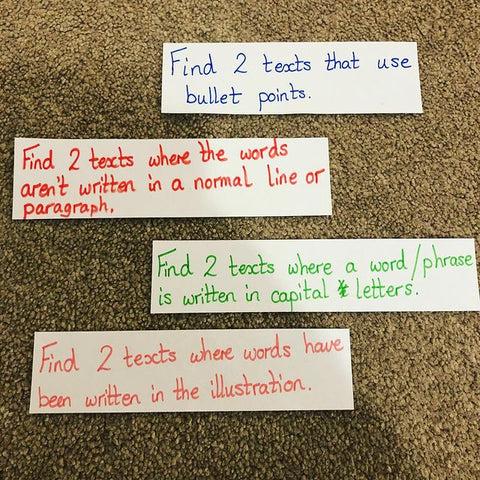 Find 2 texts that use
bullet points.
Find 2 texts where the words
aren't written in a normal line or
paragraph.
Find 2 texts where a word/phrase
is written in capital letters.
Find 2 texts where words have
been written in the illustration.